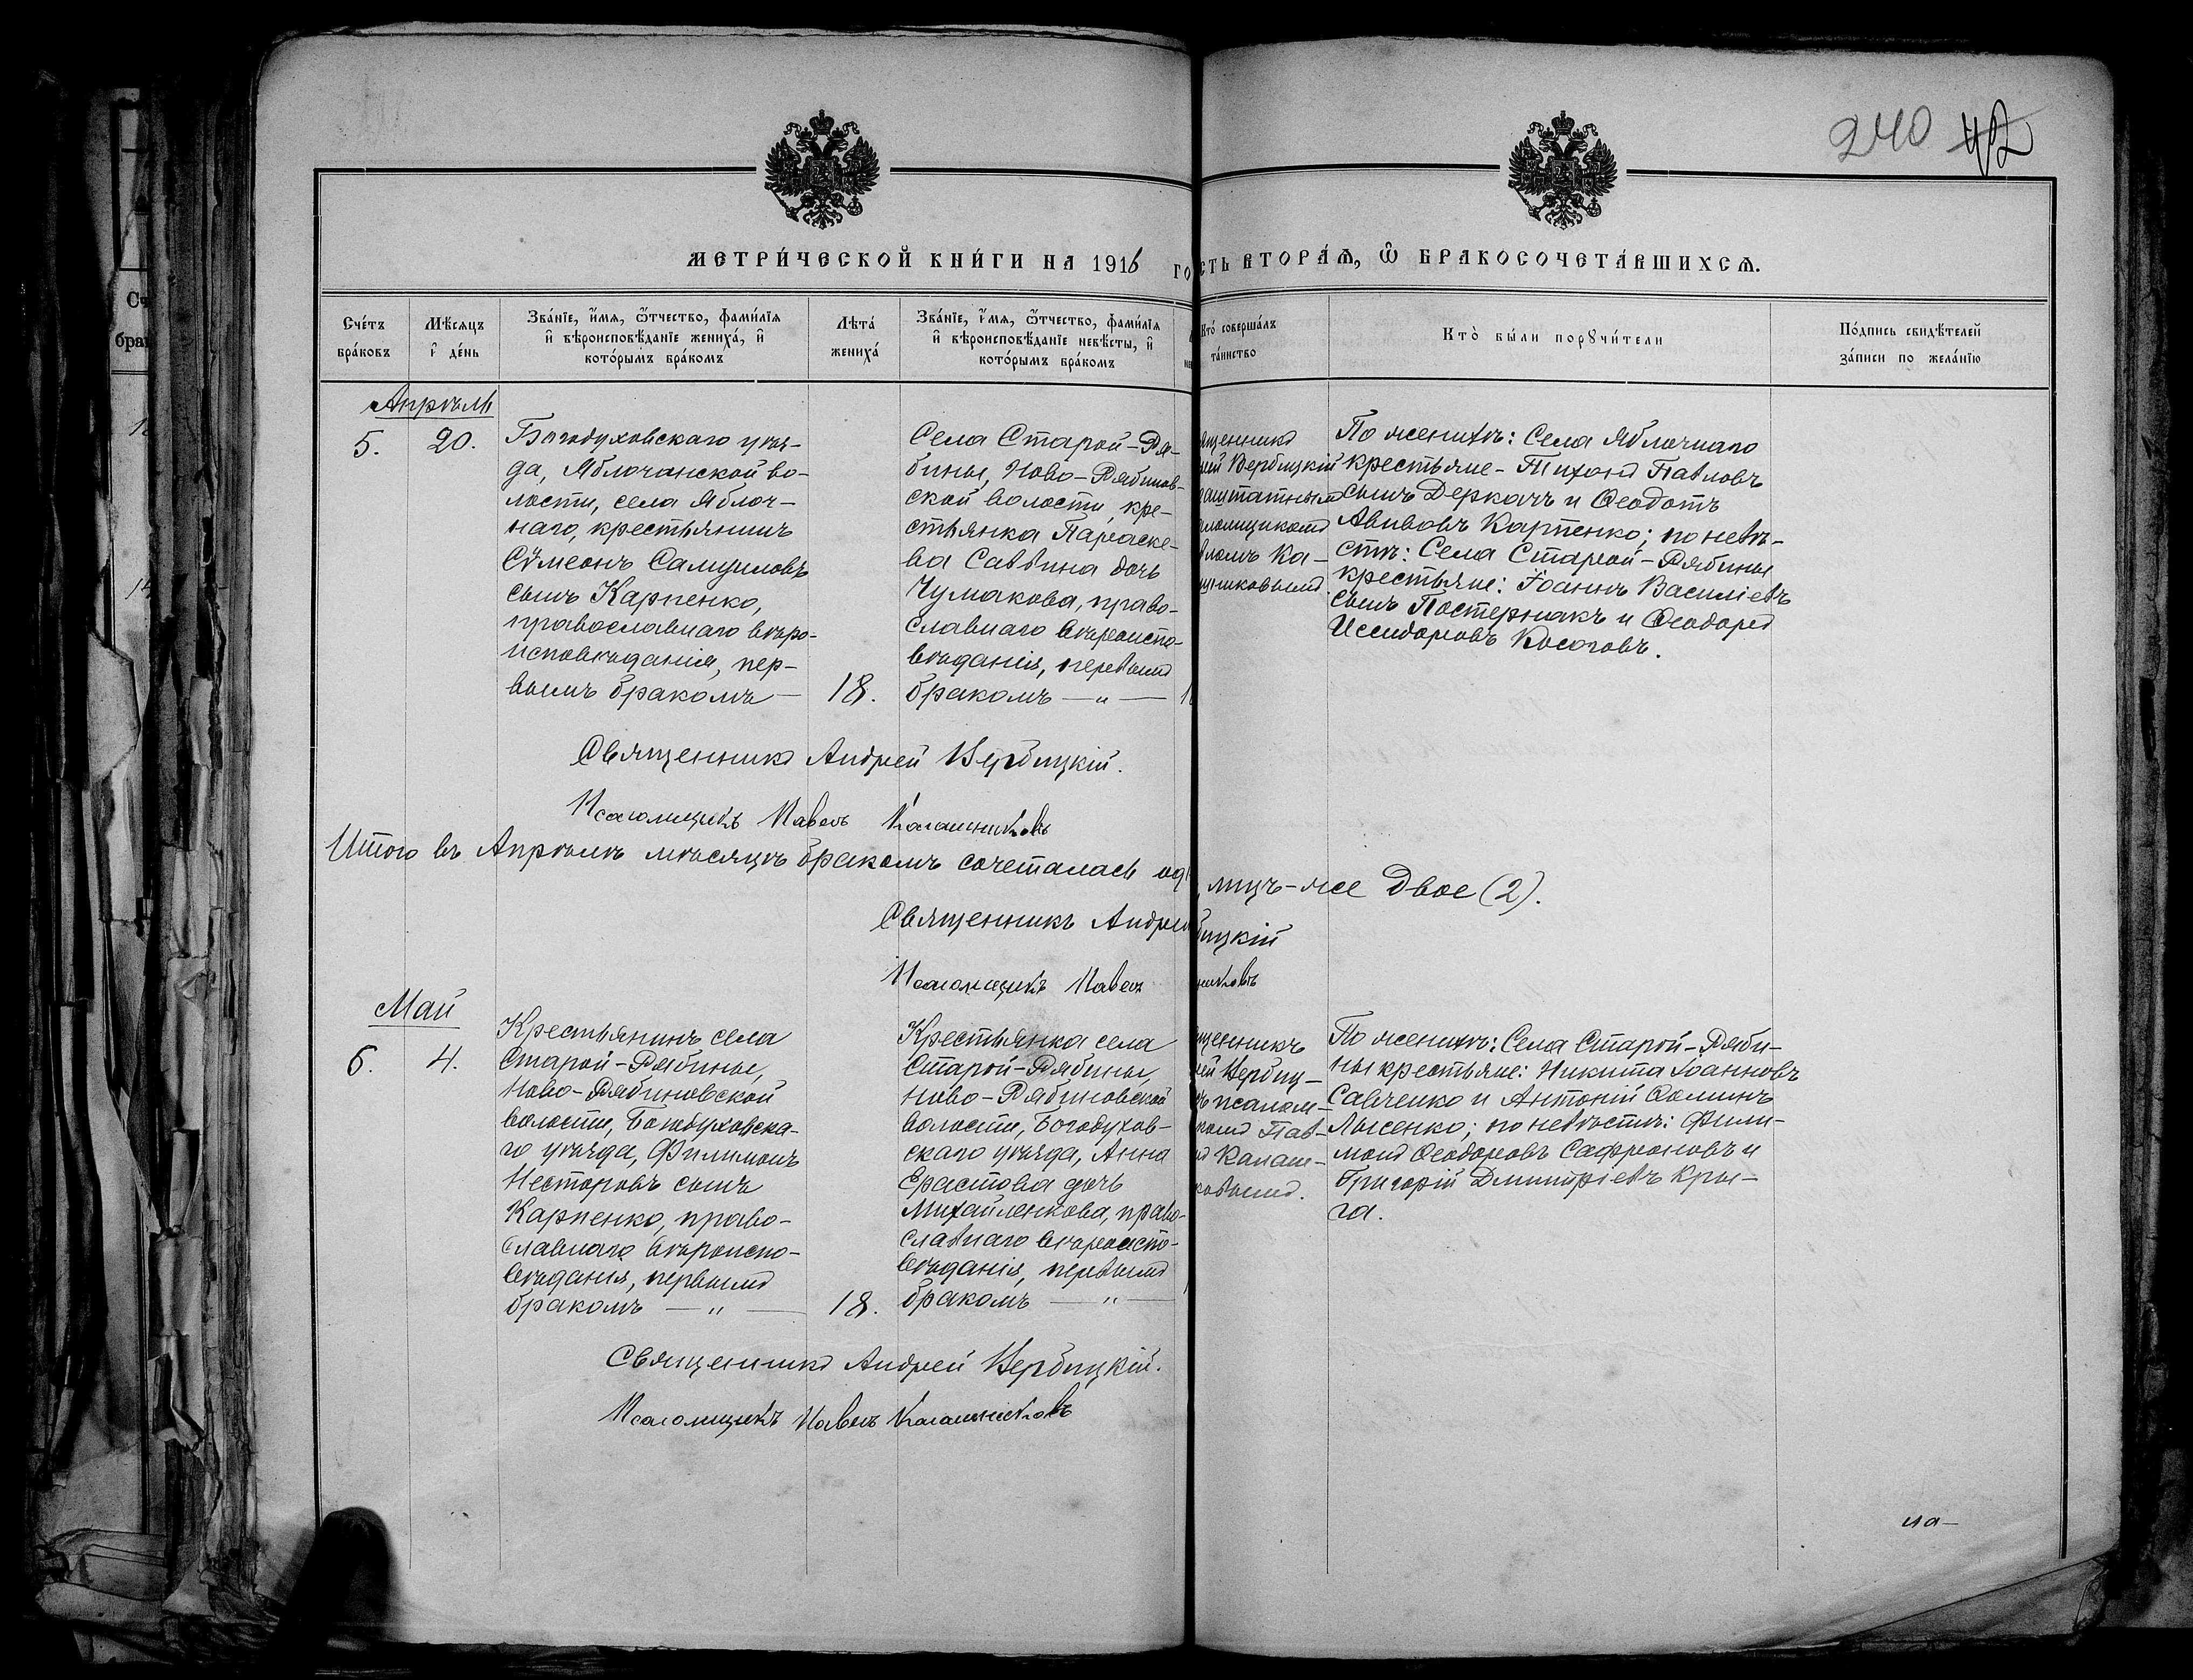 240 42
МЕТРИ́ЧЕСКОЙ КНИ́ГИ НА 1916 ГО
СТЬ ВТОРА́Ѧ, Ѡ҆ БРАКОСОЧЕТА́ВШИХСѦ.
Сче́тъ
бра́ковъ
Мѣ́сяцъ
и҆ де́нь
Зва́нїе, и҆́мя, ѻ҆́тчество, фами́лїя
и҆ вѣроисповѣ́данїе жениха́, и҆
кото́рымъ бра́комъ
Лѣта́
жениха́
Зва́нїе, и҆́мя, ѻ҆́тчество, фами́лїя
и҆ вѣроисповѣ́данїе невѣ́сты, и҆
кото́рымъ бра́комъ
Кто́ соверша́лъ
та́инство
Кто̀ бы́ли порꙋчи́тели
По́дпись свидѣ́телей
за́писи по жела́нїю
Апрѣль
5.
20.
Богодуховскаго уѣз-
да, Яблочанской во-
лости, села Яблоч-
наго, крестьянинъ
Сѵмеонъ Самуиловъ
сынъ Карпенко,
православнаго вѣро-
исповѣданія, пер-
вымъ бракомъ —
18.
Села Старой-Ря-
бины, Ново-Рябинов-
ской волости, кре-
стьянка Параске-
ва Саввина дочь
Чумакова, право-
славнаго вѣроиспо-
вѣданія, первымъ
бракомъ — „ —
ященникъ
рей Вербицкій
заштатнымъ
аломщикомъ
вломъ Ка-
шниковымъ
По женихѣ: Села Яблочнаго
крестьяне - Тихонъ Павловъ
сынъ Деркачъ и Ѳеодотъ
Авивовъ Карпенко; по невѣ-
стѣ: Села Старой-Рябины
крестьяне: Іоаннъ Василіевъ
сынъ Постернакъ и Ѳеодоръ
Исидоровъ Косоговъ.
Священникъ Андрей Вербицкій.
Псаломщикъ Павелъ Калашниковъ
Итого въ Апрѣлѣ мѣсяцѣ бракомъ сочеталась од
, лицъ-же двое (2).
Священникъ Андрей
бицкій
Псаломщикъ Павелъ
никовъ
Май
6.
4.
Крестьянинъ села
Старой-Рябины,
Ново-Рябиновской
волости, Богодуховска-
го уѣзда, Филимонъ
Несторовъ сынъ
Карпенко, право-
славнаго вѣроиспо-
вѣданія, первымъ
бракомъ — „ —
18.
Крестьянка села
Старой-Рябины,
Ново-Рябиновской
волости, Богодухов-
скаго уѣзда, Анна
Ерастова дочь
Михайленкова, право-
славнаго вѣроиспо-
вѣданія, первымъ
бракомъ — „ —
щенникъ
ей Вербиц-
ъ псалом-
комъ Пав-
ъ Калаш-
ковымъ.
По женихѣ: Села Старой-Ряби-
ны крестьяне: Никита Іоанновъ
Савченко и Антоній Ѳоминъ
Лысенко; по невѣстѣ: Фили-
монъ Ѳеодоровъ Сафроновъ и
Григорій Димитріевъ Кры-
га.
Священникъ Андрей Вербицкій.
Псаломщикъ Павелъ Калашниковъ
на-